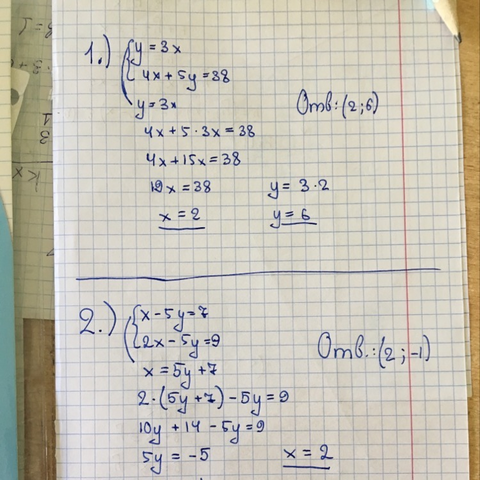 1.) y = 3x
4x + 5y = 38
y = 3x
Отв: (2; 6)
4x + 5 · 3x = 38
4x + 15x = 38
19x = 38
y = 3 · 2
x = 2
y = 6
2.) x - 5y = 7
2x - 5y = 9
Отв.: (2; -1)
x = 5y + 7
2 · (5y + 7) - 5y = 9
10y + 14 - 5y = 9
5y = -5
x = 2